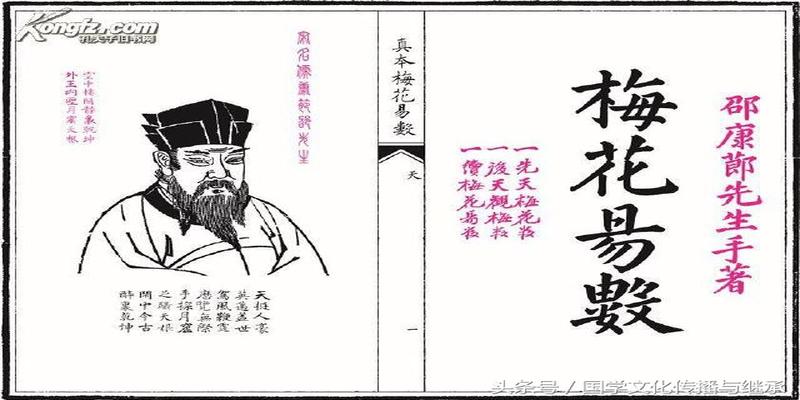 邵康節先生手著
梅花易數
一先天梅花數
一後天觀梅數
一價梅花易數
真本梅花易數
天
一
宋名儒康節邵先生
空中樓閣靜裏乾坤
外王內聖月窟天根
天挺人豪
英邁蓋世
駕風鞭霆
歷覽無際
手探月窟
足躡天根
閒中今古
醉裏乾坤
Kongfz.com
孔夫子旧书网
头条号 / 国学文化传播与继承